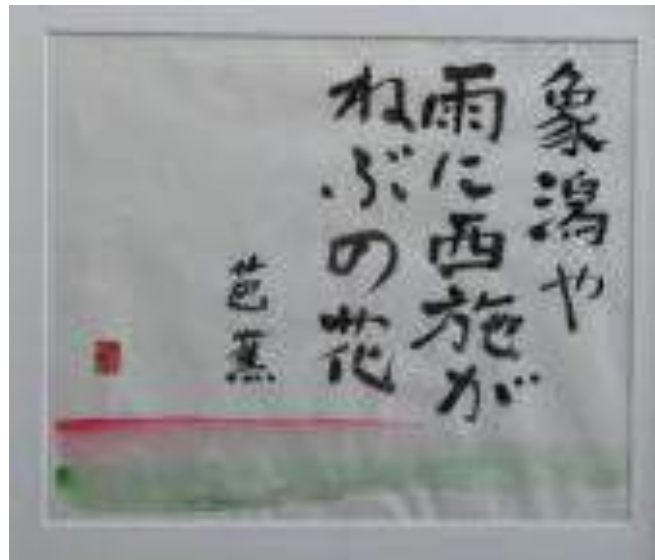 象潟や
雨に西施が
ねぶの花
芭蕉